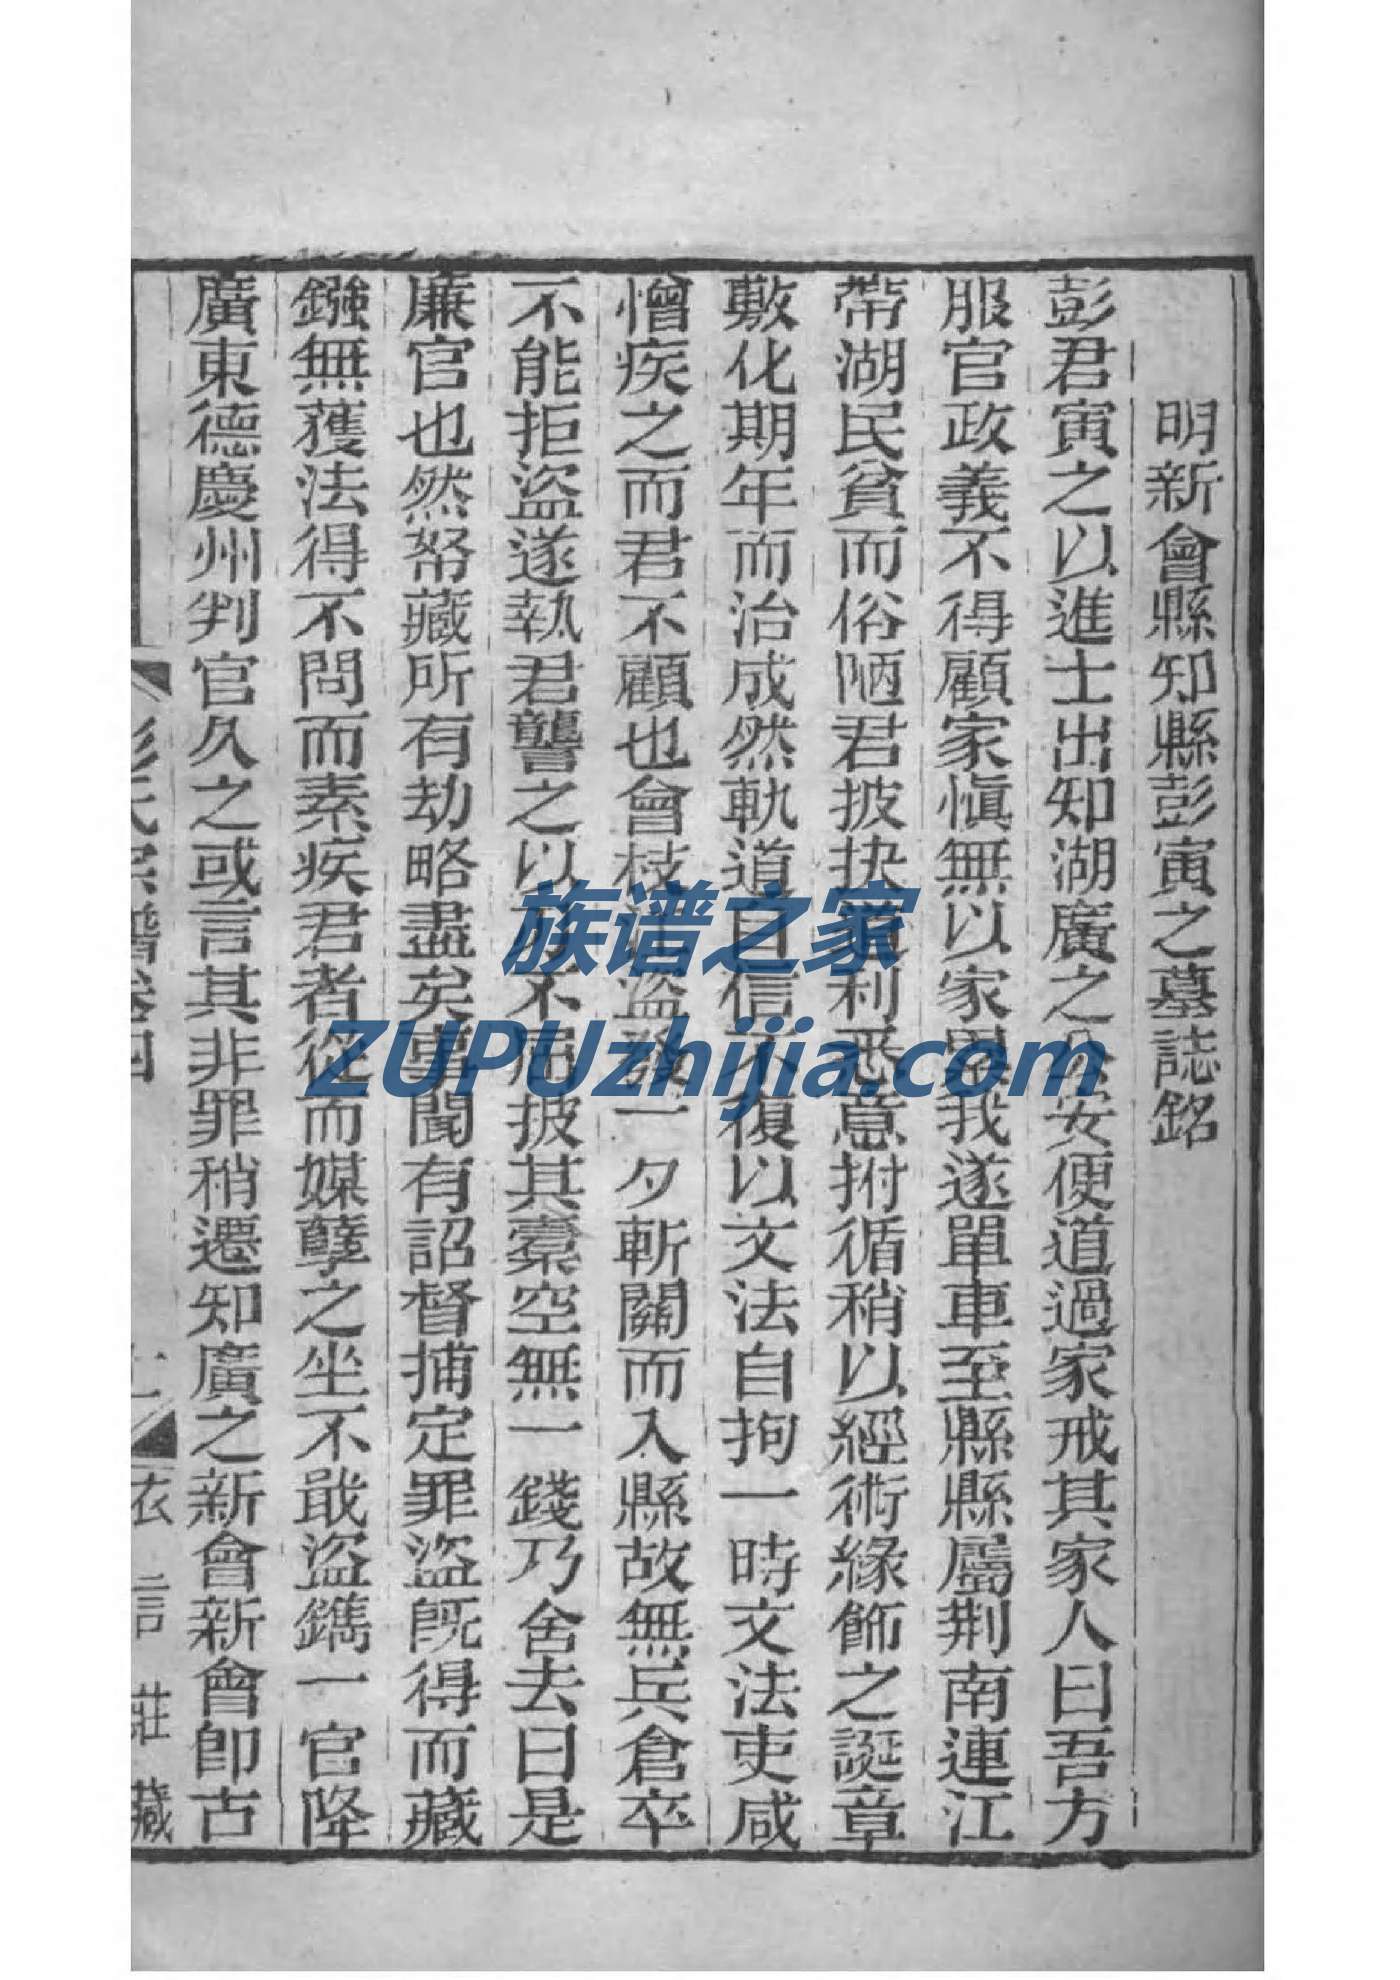 明新會縣知縣彭寅之墓誌銘
彭君寅之以進士出知湖廣之公安便道過家戒其家人曰吾方
服官政義不得顧家愼無以家累我遂單車至縣縣屬荆南連江
帶湖民貧而俗陋君披抉利悉意拊循稍以經術緣飾之誕章
敷化期年而治成然軌道自信不復以文法自拘一時文法吏咸
憎疾之而君不顧也會枝江盜發一夕斬關而入縣故無兵倉卒
不能拒盜遂執君讋之以不屈披其橐空無一錢乃舍去曰是
廉官也然帑藏所有劫略盡矣事聞有詔督捕定罪盜旣得而藏
鏹無獲法得不問而素疾君者從而媒孽之坐不戢盜鐫一官降
廣東德慶州判官久之或言其非罪稍遷知廣之新會新會卽古
彭氏宗譜卷四
衣言莊藏
族谱之家
ZUPUzhijia.com